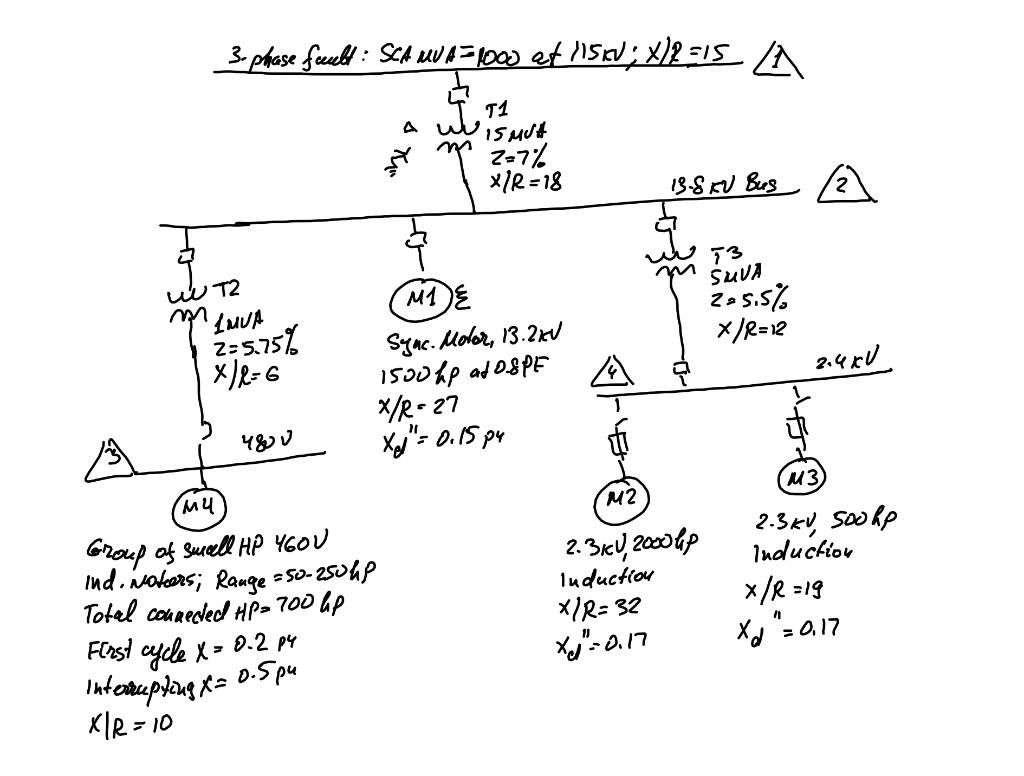 3-phase fault: SCA MVA=1000 at 115kV; X/R=15
1
T1
Δ
15 MVA
Z=7%
X/R=18
13.8 kV Bus
2
T2
1MVA
Z=5.75%
X/R=6
M1
Sync. Motor, 13.2kV
1500hp at 0.8PF
X/R=27
Xd"=0.15 pu
T3
5MVA
Z=5.5%
X/R=12
4
2.4 kV
3
480 V
M4
M2
M3
Group of small HP 460V
Ind. Motors; Range=50-250hp
Total connected HP=700 hp
First cycle X=0.2 pu
Interrupting X=0.5pu
X/R=10
2.3kV, 2000hp
Induction
X/R=32
Xd"=0.17
2.3kV, 500hp
Induction
X/R=19
Xd"=0.17